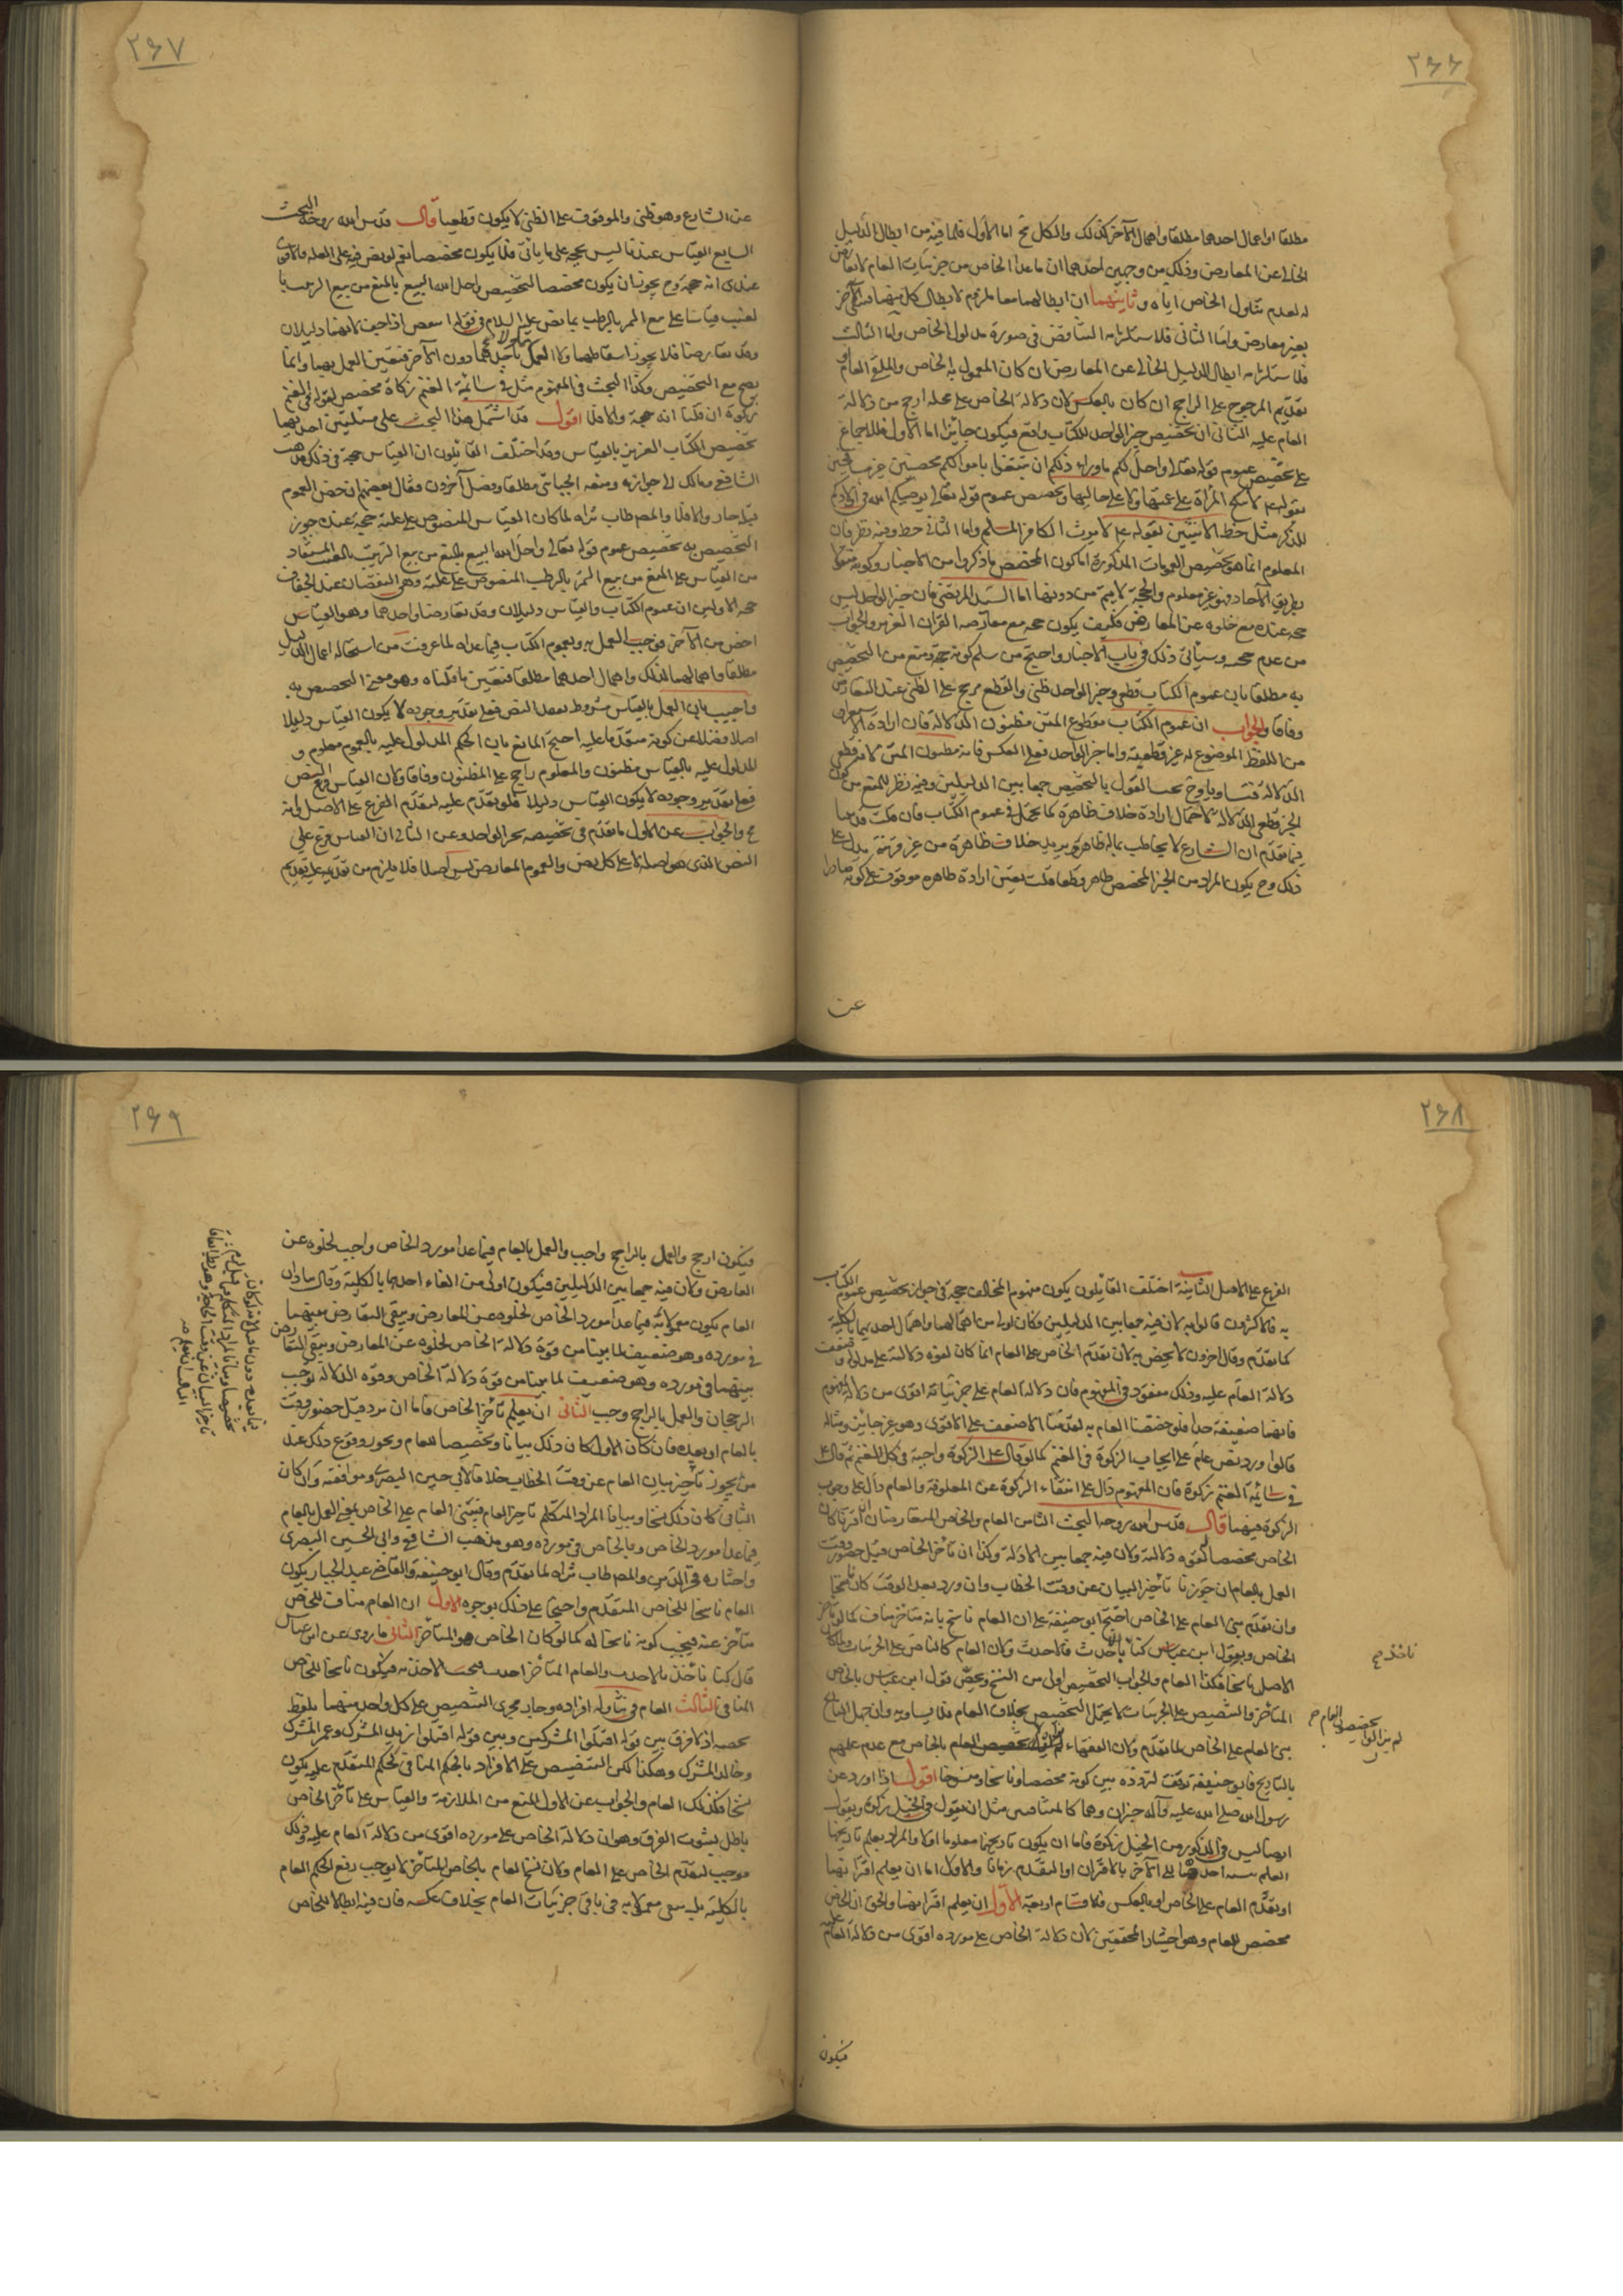 ٢٦٦
مطلقا او اعمال احدهما مطلقا واهمال الآخر كذلك والكل مح اما الاول فلما فيه من ابطال الدليل
الخالى عن المعارض وذلك من وجهين احدهما ان ماعدا الخاص من جزئيات العام لا تعارض
له لعدم تناول الخاص اياه وثانيهما ان ابطالهما معا لازم لابطال كل منهما
بغير معارض واما الثانى فلاستلزامه التناقض فى صورة مدلول الخاص واما الثالث
فلاستلزامه ابطال الدليل الخالى عن المعارض ان كان المعمول به الخاص والملغى العام و
تقديم المرجوح على الراجح ان كان بالعكس لان دلالة الخاص على محله ارجح من دلالة
العام عليه الثانى ان تخصيص خبر الواحد للكتاب واقع فيكون جايزا اما الاول فللاجماع
على تخصيص عموم قوله تعالى واحل لكم ماوراء ذلكم ان تبتغوا باموالكم محصنين غير مسافحين
بقوله لا تنكح المراة على عمتها ولا على خالتها وتخصيص عموم قوله تعالى يوصيكم الله فى اولادكم
للذكر مثل حظ الانثيين بقوله لا يورث الكافر المسلم واما الثانى وفيه نظر فان
المعلوم انما هو تخصيص العمومات المذكورة اما كون المخصص ما ذكروا من الاخبار وكونه منقولا
بطريق الآحاد فهو غير معلوم والحجة لا يتم من دونهما اما السيد المرتضى فان خبر الواحد ليس
حجة عنده مع خلوه عن المعارض فكيف يكون حجة مع معارضة القران العزيز والجواب
من عدم حجيته وسيأتى ذلك فى باب الاخبار واحتج من سلم كونه حجة ومنع من التخصيص
به مطلقا بان عموم الكتاب قطعى وخبر الواحد ظنى والقطع مرجح على الظنى عند التعارض
وفاقا والجواب ان عموم الكتاب مقطوع المتن مظنون الدلالة فان ارادة
من اللفظ الموضوع له غير قطعية واما خبر الواحد فعلى العكس فانه مظنون المتن لانه قطعى
الدلالة فتساويا وح يجب القول بالتخصيص جمعا بين الدليلين وفيه نظر للمنع من كون
الخبر قطعى الدلالة لاحتمال ارادة خلاف ظاهره كما يحتمل فى عموم الكتاب فان قلت قد بينا
فيما تقدم ان الشارع لا يخاطب بماله ظاهر ويريد خلاف ظاهره من غير قرينة يدل على
ذلك وح يكون المراد من الخبر المخصص ظاهر قطعا قلت تعين ارادة ظاهره موقوف على كونه صادرا
عن
٢٦٧
عن الشارع وهو ظنى والموقوف على الظنى لا يكون قطعيا قال قدس الله روحه البحث
السابع القياس عندنا ليس بحجة على ما يأتى فلا يكون مخصصا نعم لو نص فيه على العلة فالاقوى
عندى انه حجة وح يجوز ان يكون مخصصا لتخصيص واحل الله البيع بالمنع من بيع الزبيب با
لعنب قياسا على منع التمر بالرطب بما نص عليه السلام فى قوله اينقص اذا جف لانهما دليلان
وقد تعارضا فلا يجوز اسقاطهما ولا العمل باحدهما دون الآخر فتعين العمل بهما وانما
يصح مع التخصيص وكذا البحث فى المفهوم مثل فى سائمة الغنم زكاة مخصص لقوله فى الغنم
زكوة ان قلنا انه حجة والا فلا اقول قد اشتمل هذا البحث على مسئلتين احديهما
تخصيص الكتاب العزيز بالقياس وقد اختلف القائلون ان القياس حجة فى ذلك فذهب
الشافعى ومالك الى جوازه ومنعه الجبائى مطلقا وفصل آخرون فقال بعضهم ان خص العموم
قبله جاز والا فلا والمصنف طاب ثراه لما كان القياس المنصوص على علته حجة عنده جوز
التخصيص به تخصيص عموم قوله تعالى واحل الله البيع بالمنع من بيع الزبيب بالعنب المستفاد
من القياس على المنع من بيع التمر بالرطب المنصوص على علته وهى النقصان عند الجفاف
حجة الاولين ان عموم الكتاب والقياس دليلان وقد تعارضا واحدهما وهو القياس
اخص من الآخر فوجب العمل به وبعموم الكتاب فيما عداه لما عرفت من استحالة اعمال الدليلين
مطلقا واهمالهما كذلك واهمال احدهما مطلقا فتعين ما قلناه وهو معنى التخصيص به
واجيب بان العمل بالقياس مشروط بفقد النص فعلى تقدير وجوده لا يكون القياس دليلا
اصلا فضلا عن كونه متقدما عليه احتج المانع بان الحكم المدلول عليه بالعموم معلوم و
المدلول عليه بالقياس مظنون والمعلوم راجح على المظنون وفاقا ولان القياس فرع النص
فعلى تقدير وجوده لا يكون القياس دليلا فلو تقدم عليه لتقدم الفرع على الاصل وانه
مح والجواب عن الاول ما تقدم فى تخصيصه بخبر الواحد وعن الثانى ان القياس فرع على
النص الذى هو اصله لا على كل نص والعموم المعارض ليس اصلا فلا يلزم من تقديمه عليه تقديم
٢٦٨
الفرع على الاصل الثانية اختلف القائلون يكون مفهوم المخالف حجة فى جواز تخصيص عموم الكتاب
به فالاكثرون قالوا به لان فيه جمعا بين الدليلين وكان اولى من اهمالهما واهمال احديهما بالكلية
كما تقدم وقال اخرون لا يخص به لان تقدم الخاص على العام انما كان لقوة دلالته على مدلوله وضعف
دلالة العام عليه وذلك مفقود فى المفهوم فان دلالة العام على جزئياته اقوى من دلالة المفهوم
فانها ضعيفة جدا فلو خصصنا العام به لقدمنا الاضعف على الاقوى وهو غير جايز ومثاله
قالوا ورد نص عام على ايجاب الزكوة فى الغنم كما لو قال الزكوة واجبة فى كل الغنم ثم قال
فى سائمة الغنم زكوة فان المفهوم دال على انتفاء الزكوة عن المعلوفة والعام دال على وجوب
الزكوة فيهما قال قدس الله روحه البحث الثامن العام والخاص المتعارضان ان اقترنا كان
الخاص مخصصا لقوة دلالته ولان فيه جمعا بين الادلة وكذا ان تأخر الخاص قبل حضور وقت
العمل بالعام ان جوزنا تأخير البيان عن وقت الخطاب وان ورد بعد الوقت كان ناسخا
وان تقدم بنى العام على الخاص احتج ابو حنيفة على ان العام ناسخ بانه متأخر مناف كما لو تأخر
الخاص وبقول ابن عباس كنا نأخذ بالاحدث فالاحدث ولان العام كالناص على الجزئيات
الاصل ناسخا فكذا العام والجواب التخصيص اولى من النسخ ويخص قول ابن عباس بالخاص
المتأخر والتنصيص على الجزئيات لا يحتمل التخصيص بخلاف العام فلا يساويه وان جهل التاريخ
بنى العام على الخاص لما تقدم ولان الفقهاء تخصيص العام بالخاص مع عدم علمهم
بالتاريخ وابو حنيفة توقف لتردده بين كونه مخصصا وناسخا ومنسوخا اقول اذا ورد عن
رسول الله صلى الله عليه وآله خبران وهما كالمتنافيين مثل ان يقول فى الخيل زكوة ويقول
ايضا ليس فى الذكور من الخيل زكوة فاما ان يكون تاريخهما معلوما اولا والمراد بعلم تاريخهما
العلم بنسبة احدهما الى الآخر بالاقتران او التقدم زمانا والاول اما ان يعلم اقترانهما
او تقدم العام على الخاص او بالعكس فالاقسام اربعة الاول ان يعلم اقترانهما والحق ان الخاص
مخصص للعام وهو اختيار المحققين لان دلالة الخاص على مورده اقوى من دلالة العام عليه
فيكون
٢٦٩
فيكون ارجح والعمل بالراجح واجب والعمل بالعام فيما عدا مورد الخاص واجب لخلوه عن
المعارض ولان فيه جمعا بين الدليلين فيكون اولى من الغاء احدهما بالكلية وقال شاذان
العام يكون معمولا به فيما عدا مورد الخاص لخلوه عن المعارض ويبقى التعارض بينهما
فى مورده وهو ضعيف لما بينا من قوة دلالة الخاص لخلوه عن المعارض ويبقى التعارض
بينهما فى مورده وهو ضعيف لما بينا من قوة دلالة الخاص وقوة الدلالة توجب
الرجحان والعمل بالراجح وجب الثانى ان يعلم تأخر الخاص فاما ان يرد قبل حضور وقت
بالعام او بعده فان كان الاول كان ذلك بيانا وتخصيصا للعام ويجوز وقوع ذلك عند
من يجوز تأخير بيان العام عن وقت الخطاب خلافا لابى حسين البصرى وموافقيه وان كان
الثانى كان ذلك نسخا وبيانا المراد المتكلم تاخر العام فيبنى العام على الخاص بمعنى العمل بالعام
فيما عدا مورد الخاص وبالخاص فى مورده وهو مذهب الشافعى وابى الحسين البصرى
واختاره فخر الدين والمصنف طاب ثراه لما تقدم وقال ابو حنيفة والقاضى عبد الجبار يكون
العام ناسخا للخاص المتقدم واحتجا على ذلك بوجوه الاول ان العام مناف للخاص
متأخر عنه فيجب كونه ناسخا له كما لو كان الخاص هو المتأخر الثانى ما روى عن ابن عباس
قال كنا نأخذ بالاحدث والعام المتأخر احدث فيجب الاخذ به فيكون ناسخا للخاص
المنافى الثالث العام فى تناوله افراده جار مجرى التنصيص على كل واحد منها بلفظ
يخصه اذ لا فرق بين قوله اقتلوا المشركين وبين قوله اقتلوا زيد المشرك وعمر المشرك
وخالد المشرك وهكذا لكن التنصيص على الافراد بالحكم المنافى للحكم المتقدم عليه يكون
نسخا فكذلك العام والجواب عن الاول المنع من الملازمة والقياس على تأخر الخاص
باطل بثبوت الفرق وهو ان دلالة الخاص على مورده اقوى من دلالة العام عليه وذلك
موجب لتقدم الخاص على العام ولان نسخ العام بالخاص المتأخر لا يوجب رفع الحكم العام
بالكلية بل يبقى معمولا به فى باقى جزئيات العام بخلاف عكسه فان فيه ابطالا للخاص